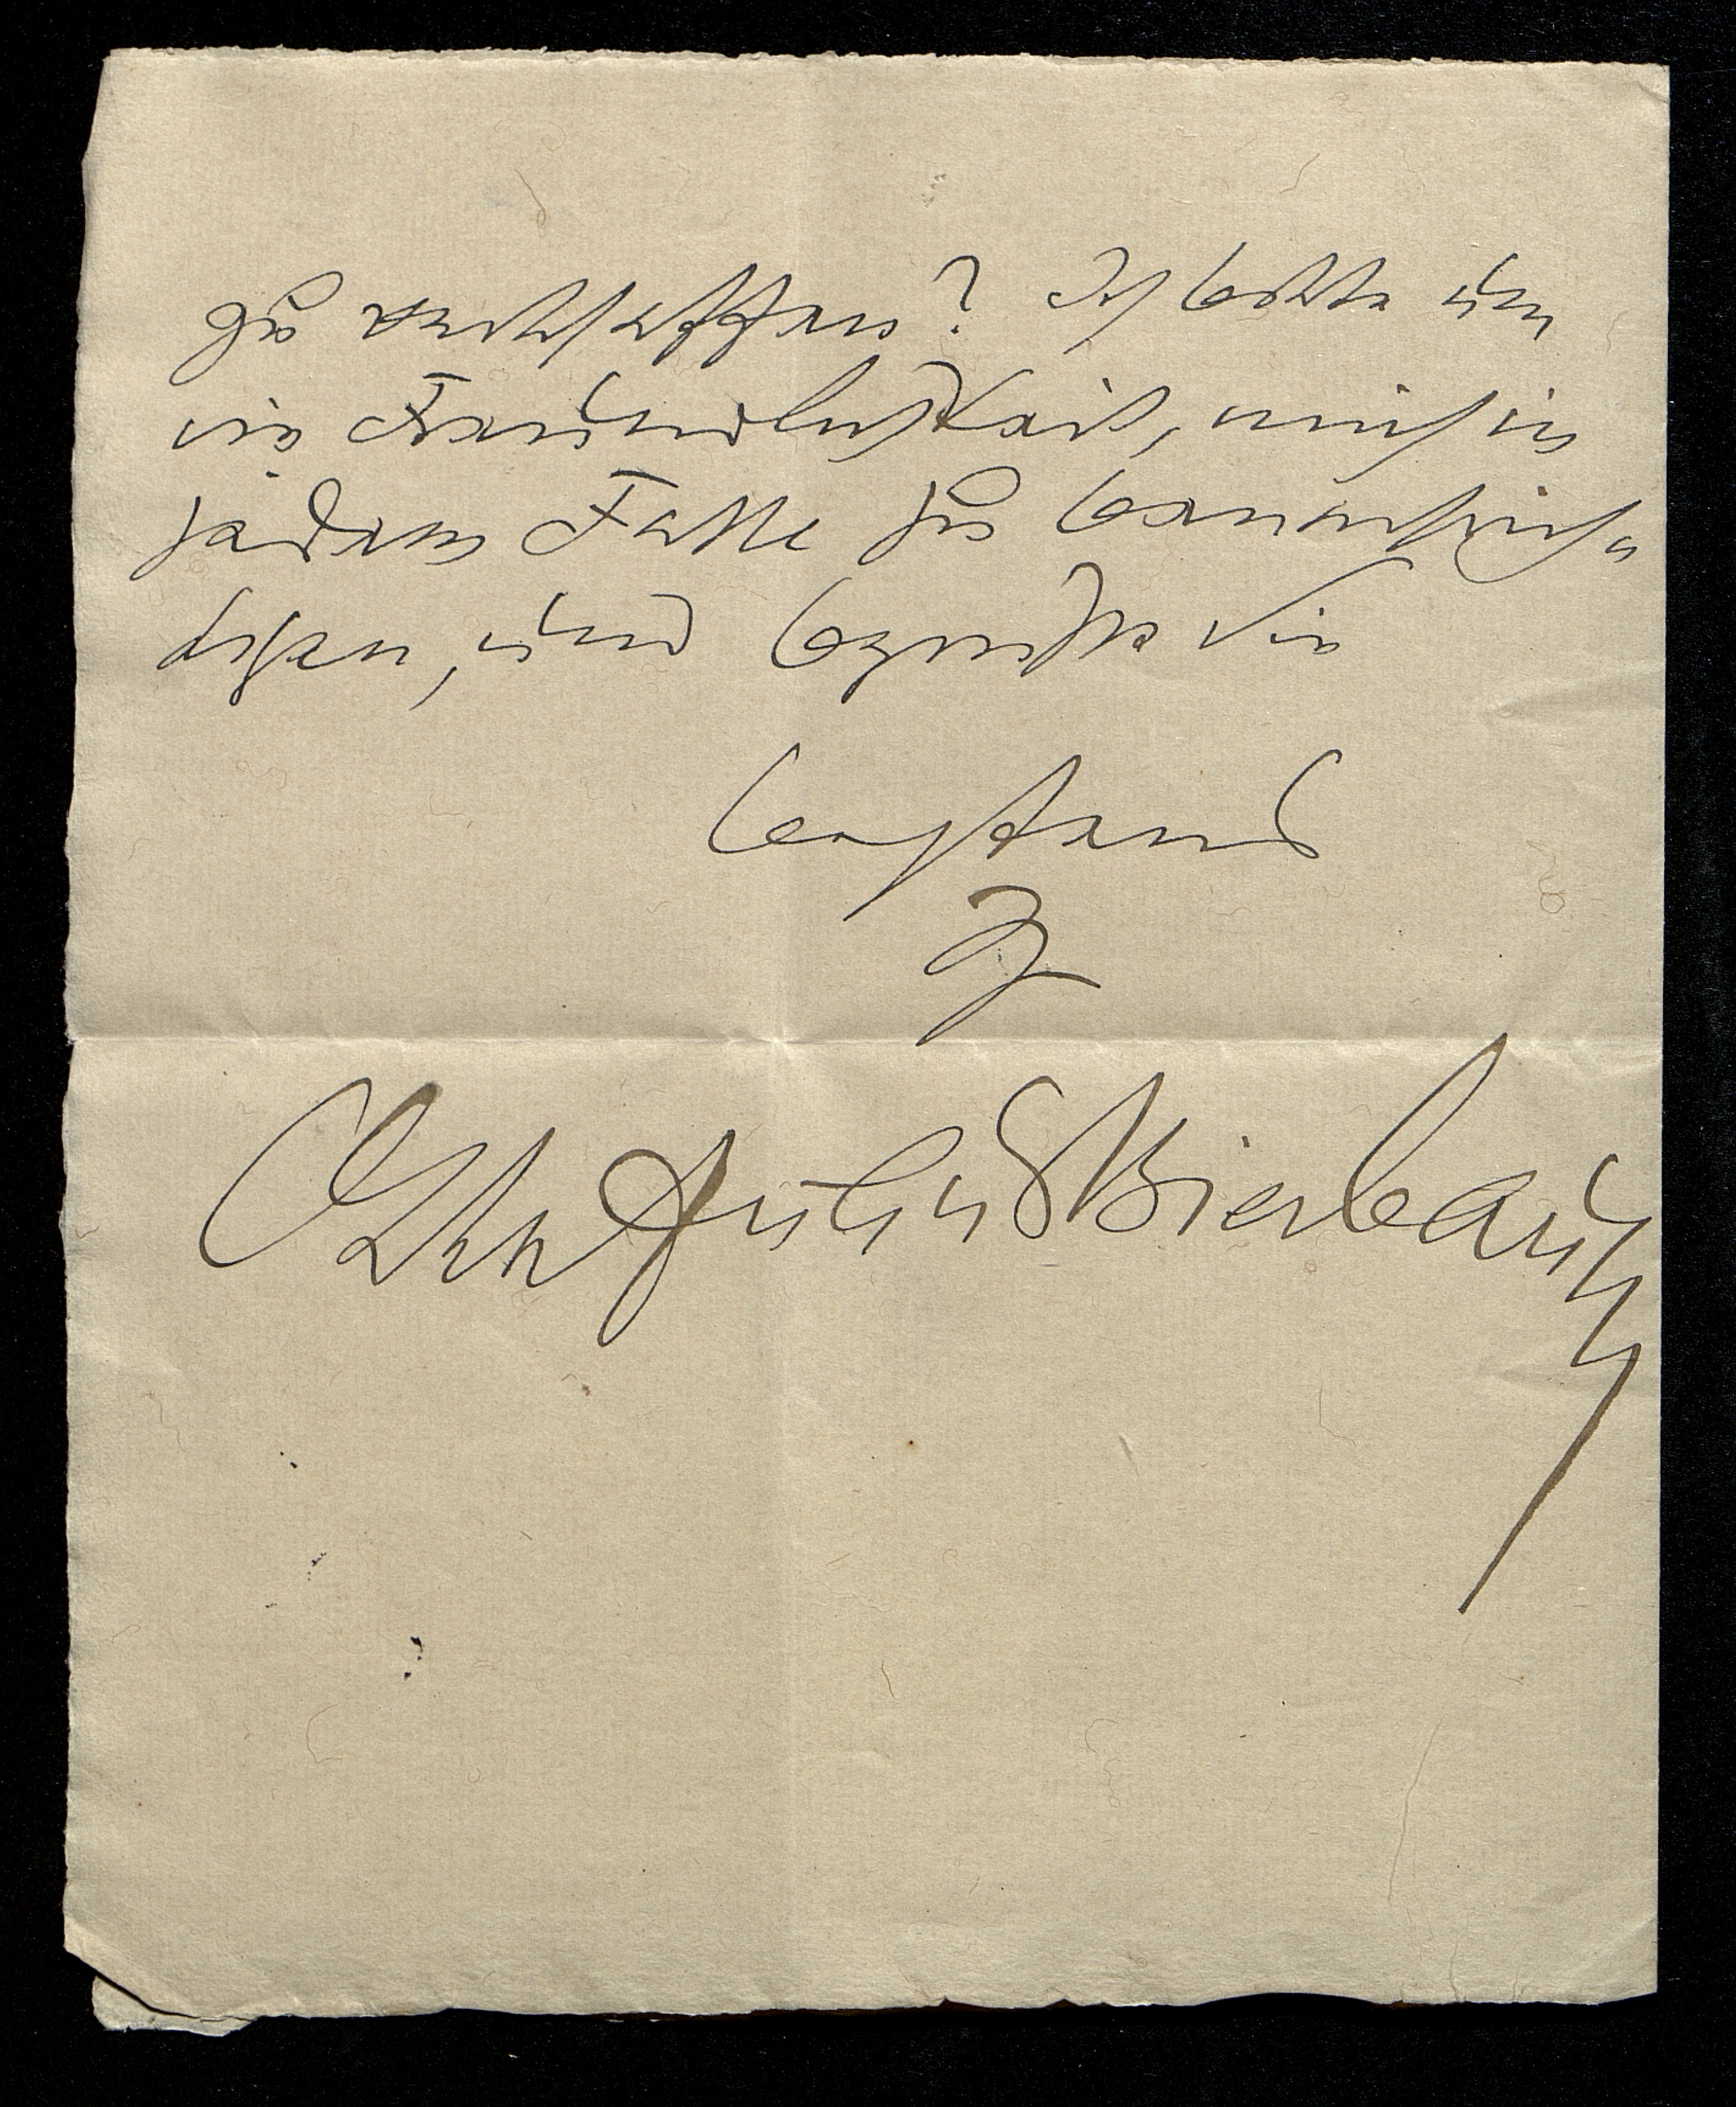 zu verschaffen? Ich bitte um
die Freundlichkeit, mich in
jedem Falle zu benachrich-
tigen, und begrüße Sie
bestens
Ihr
Otto Julius Bierbaum